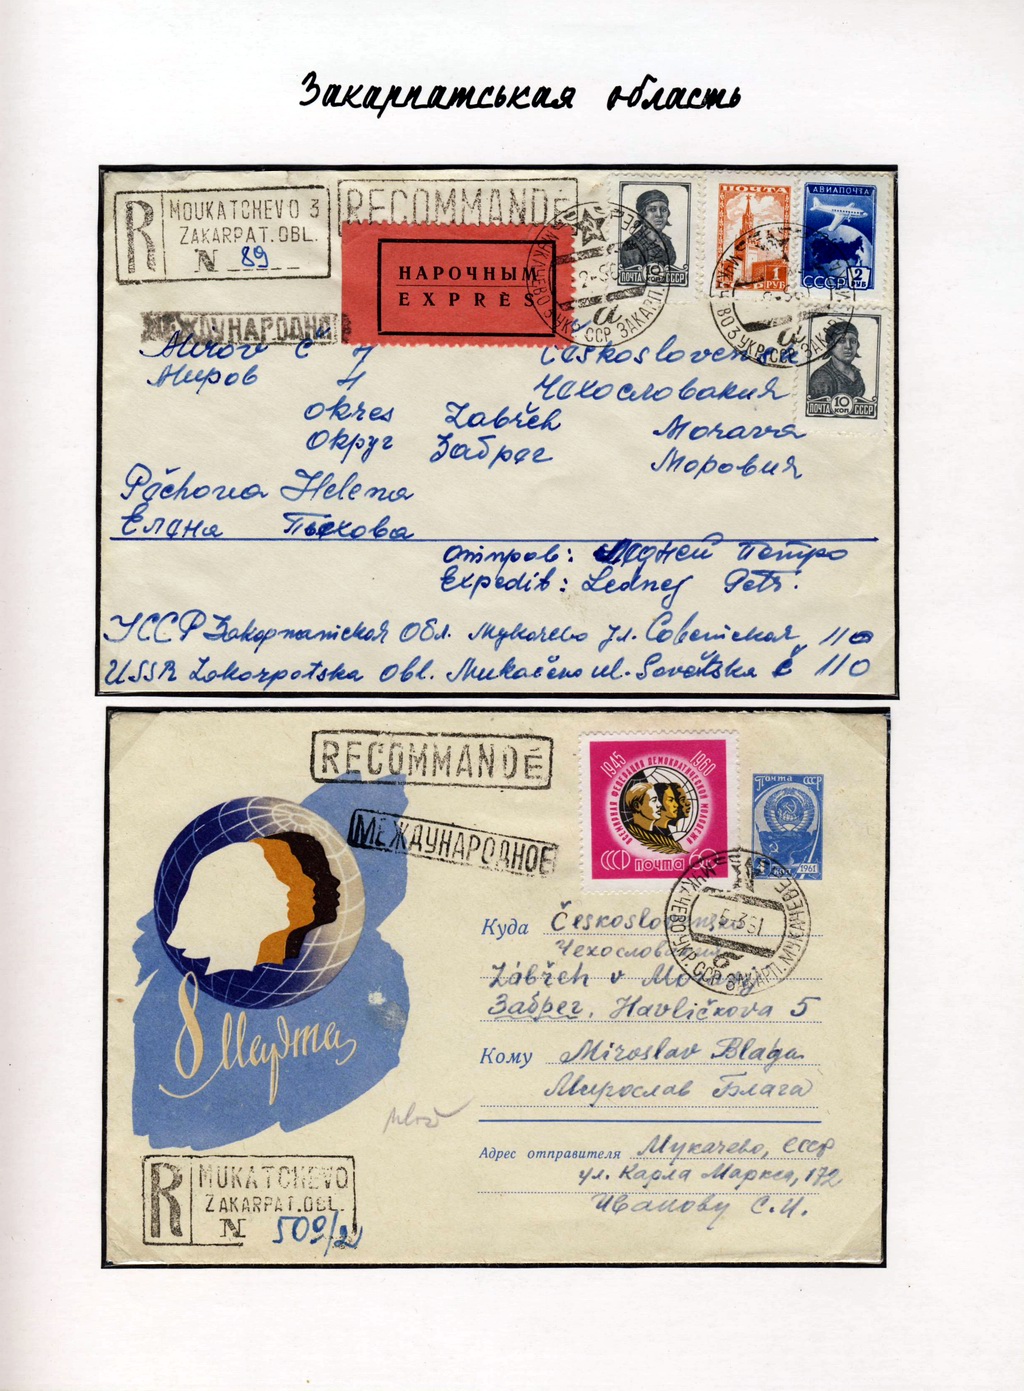 Закарпатськая область
R MOUKATCHEVO 3
ZAKARPAT. OBL.
N 89
RECOMMANDÉ
НАРОЧНЫМ
EXPRÈS
МЕЖДУНАРОДНОЕ
ПОЧТА 10 КОП СССР
ПОЧТА
1 РУБ
АВИАПОЧТА
СССР 2 РУБ
ПОЧТА 10 КОП СССР
Mirov č 4
Миров 4
Československa
Чехословакия
okres Zabřeh Morava
Округ Забрег Моровия
Pěchova Helena
Елена Пехова
отправ: Ледней Петро
Expedit: Lednej Petr.
УССР Закарпатская Обл. Мукачево ул. Советская 110
USSR Zakarpatska Obl. Mukačevo ul. Sovětska č 110
RECOMMANDÉ
МЕЖДУНАРОДНОЕ
1945 1960
ВСЕМИРНАЯ ФЕДЕРАЦИЯ ДЕМОКРАТИЧЕСКОЙ МОЛОДЕЖИ
СССР почта 60
Почта СССР
1961
8 Марта
Куда Československo
Чехословакия
Zábřeh v Moravy
Забрег, Havlíčkova 5
Кому Miroslav Blaga
Мирослав Блага
Адрес отправителя Мукачево, СССР
ул. Карла Маркса, 172
Иванову С.И.
R MUKATCHEVO
ZAKARPAT. OBL.
N 500/2